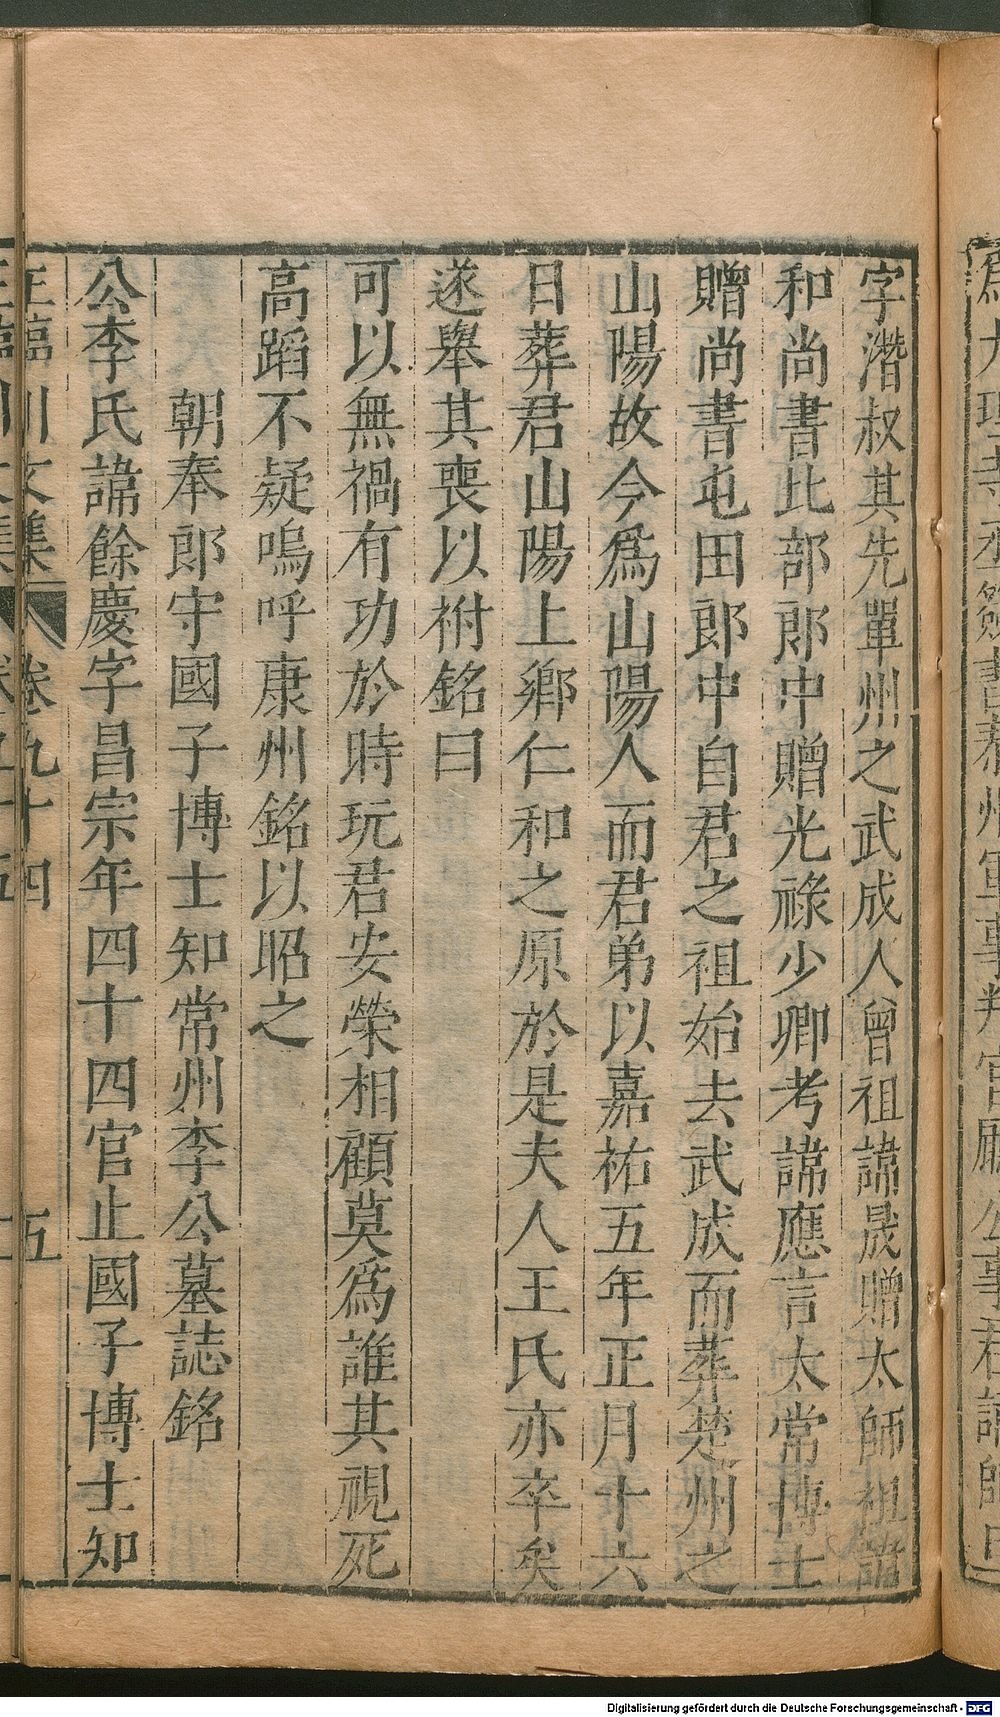 字濳叔其先單州之武成人曾祖諱晟贈太師祖諱
和尚書比部郎中贈光祿少卿考諱應言太常博士
贈尚書屯田郎中自君之祖始去武成而葬楚州之
山陽故今爲山陽人而君弟以嘉祐五年正月十六
日葬君山陽上鄉仁和之原於是夫人王氏亦卒矣
遂舉其喪以祔銘曰
可以無禍有功於時玩君安榮相顧莫爲誰其視死
高蹈不疑嗚呼康州銘以昭之
朝奉郎守國子博士知常州李公墓誌銘
公李氏諱餘慶字昌宗年四十四官止國子博士知
王臨川文集 卷九十四 五
Digitalisierung gefördert durch die Deutsche Forschungsgemeinschaft - DFG